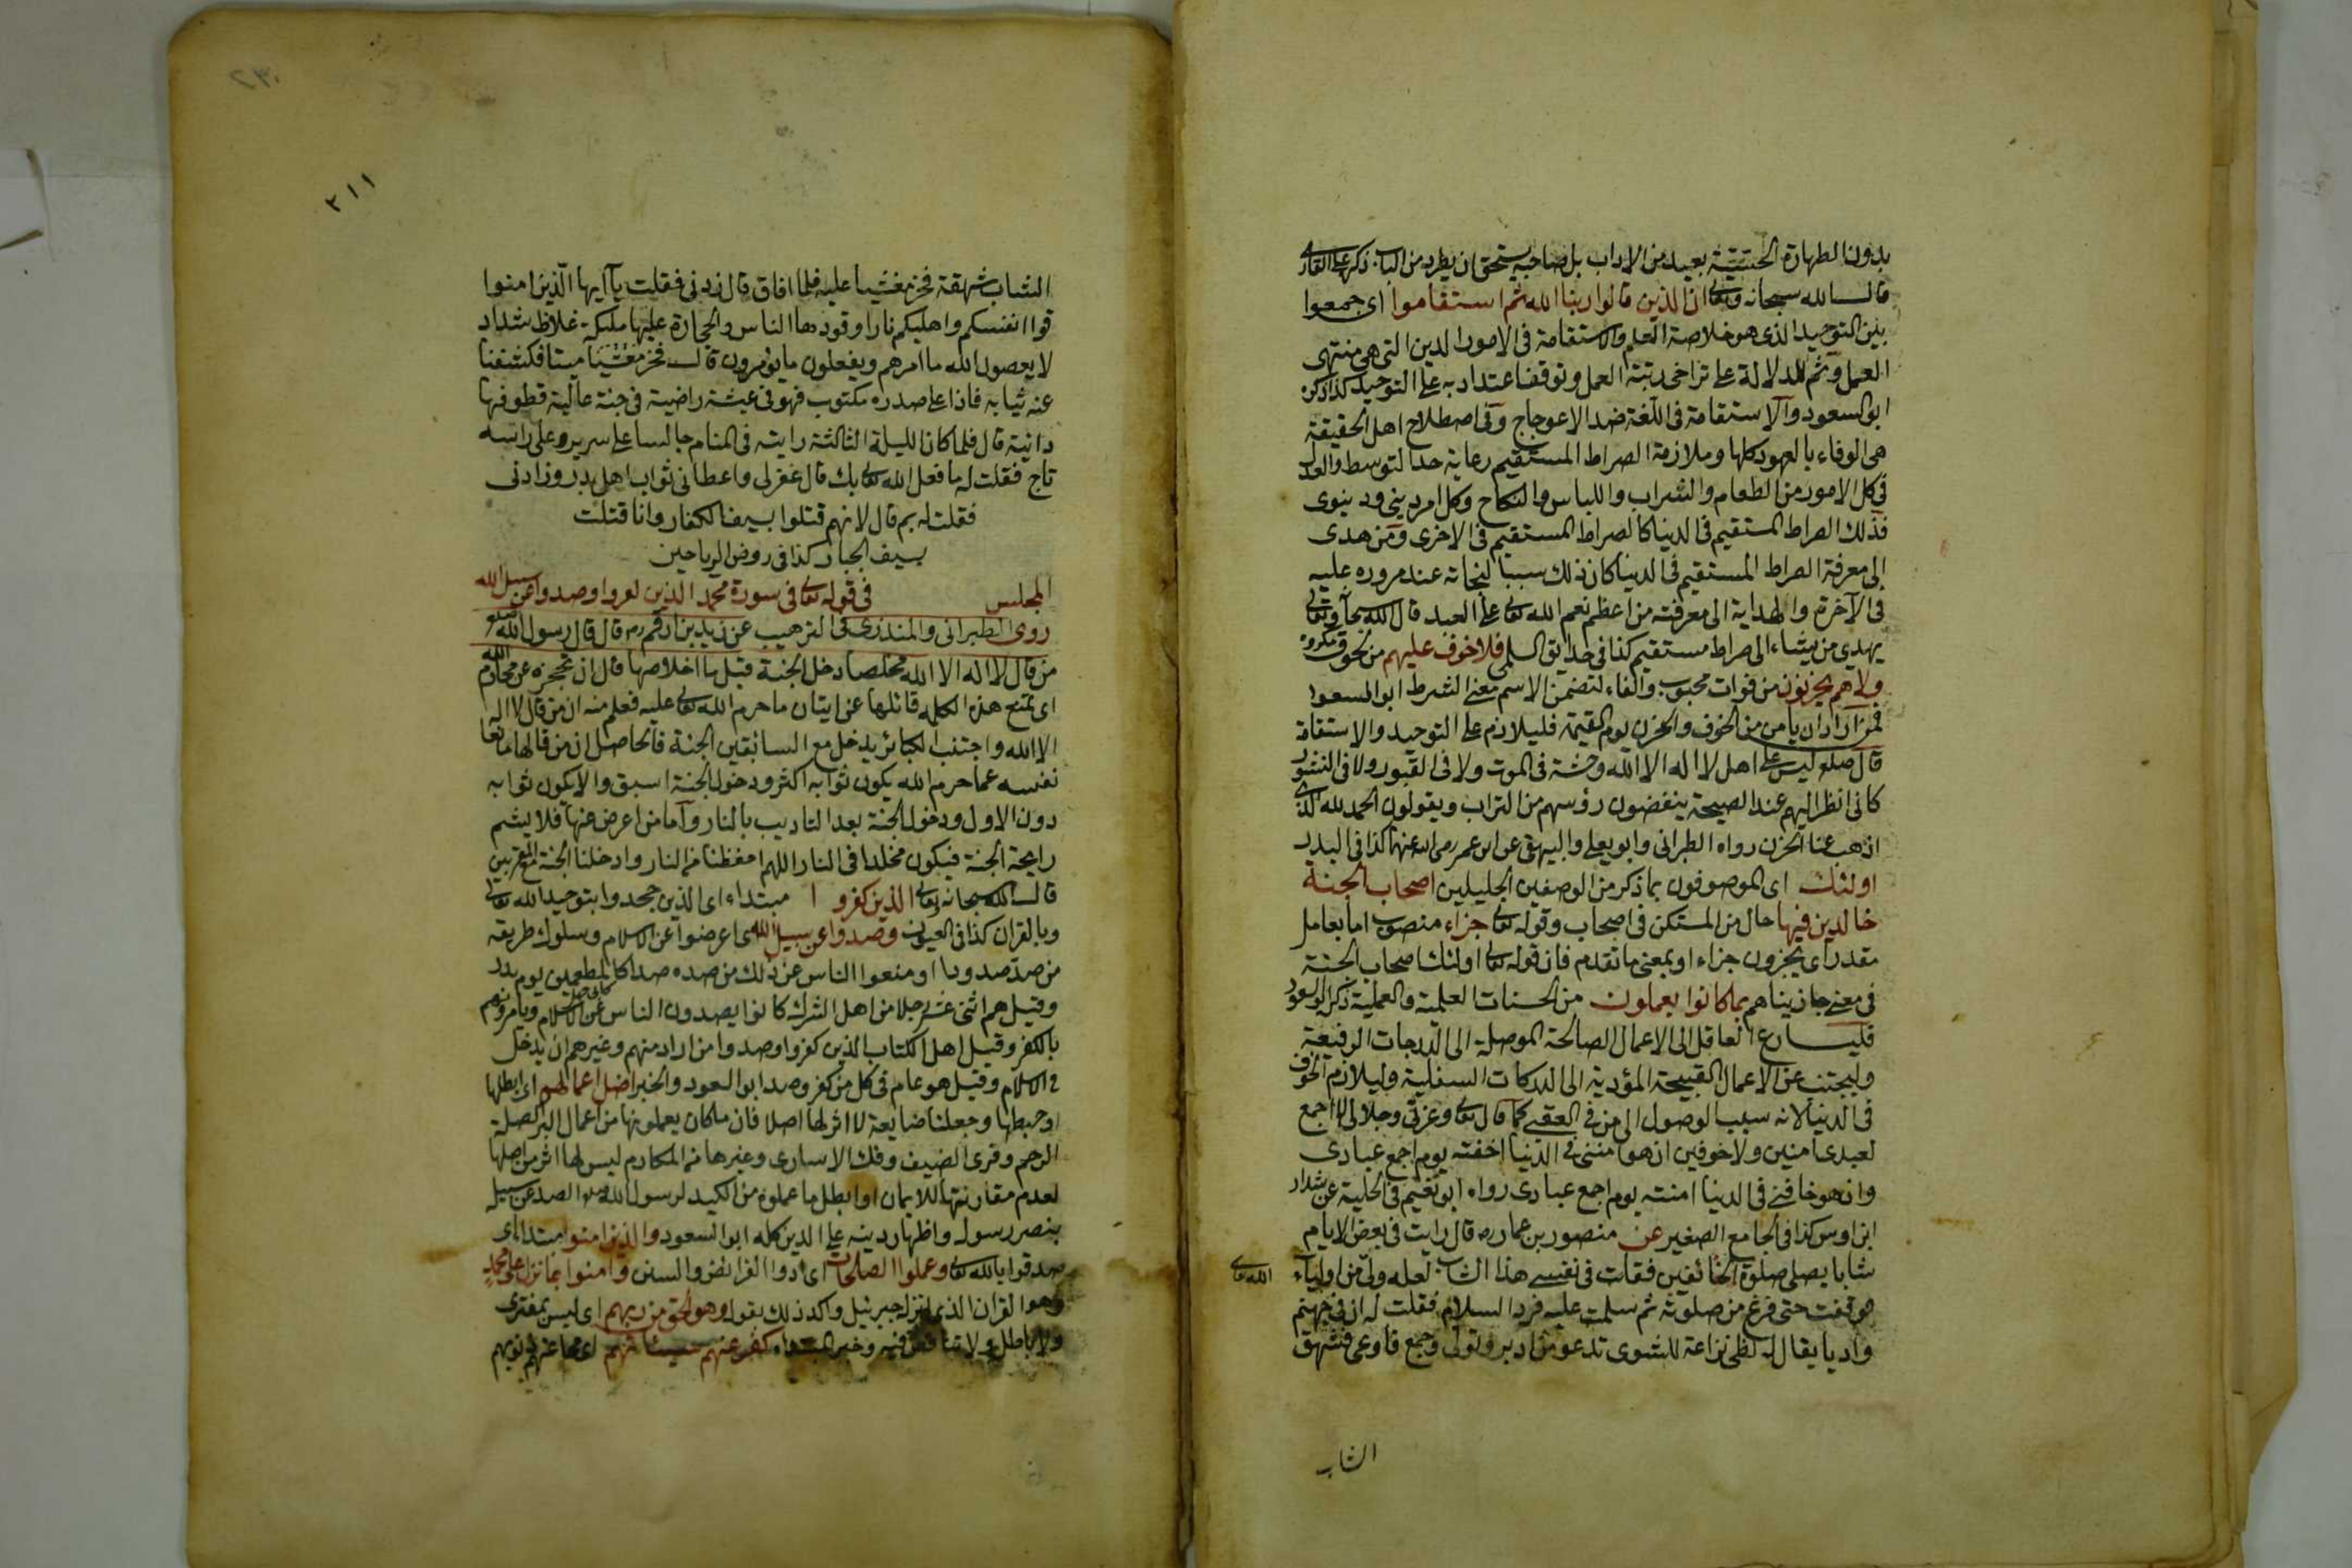 بدون الطهارة الحقيقية بعيد من الاداب بل صاحبه يستحق ان يطرد من الباب ذكره على القارى
قال الله سبحانه وتعالى ان الذين قالوا ربنا الله ثم استقاموا اى جمعوا
بين التوحيد الذى هو خلاصة العلم والاستقامة فى الامور الدين التى هى منتهى
العمل وثم للدلالة على تراخى رتبة العمل وتوقف اعتداد به على التوحيد كذا ذكره
ابو السعود والاستقامة فى اللغة ضد الاعوجاج وفى اصطلاح اهل الحقيقة
هى الوفاء بالعهود كلها وملازمة الصراط المستقيم رعاية حد التوسط والعدل
فى كل الامور من الطعام والشراب واللباس والنكاح وكل امر دينى ودنيوى
فذلك الصراط المستقيم فى الدنيا كالصراط المستقيم فى الاخرى ومن هدى
الى معرفة الصراط المستقيم فى الدنيا كان ذلك سببا لنجاته عند مروره عليه
فى الآخرة والهداية الى معرفته من اعظم نعم الله تعالى على العبد قال الله سبحانه وتعالى
يهدى من يشاء الى صراط مستقيم كذا فى حدايق السلمى فلا خوف عليهم من لحوق مكروه
ولا هم يحزنون من فوات محبوب والفاء لتضمن الاسم معنى الشرط ابو السعود
فمن اراد ان يامن من الخوف والحزن يوم القيمة فليلازم على التوحيد والاستقامة
قال صلعم ليس على اهل لا اله الا الله وحشة فى الموت ولا فى القبور ولا فى النشور
كانى انظر اليهم عند الصيحة ينفضون رؤسهم من التراب ويقولون الحمد لله الذى
اذهب عنا الحزن رواه الطبرانى وابو يعلى والبيهقى عن ابن عمر رضى الله عنهما كذا فى البدر
اولئك اى الموصوفون بما ذكر من الوصفين الجليلين اصحاب الجنة
خالدين فيها حال من المستكن فى اصحاب وقوله تعالى جزاء منصوب اما بعامل
مقدر اى يجزون جزاء او بمعنى ما تقدم فان قوله تعالى اولئك اصحاب الجنة
فى معنى جازيناهم بما كانوا يعملون من الحسنات العلمية والعملية ذكره ابو السعود
فليسارع العاقل الى الاعمال الصالحة الموصلة الى الدرجات الرفيعة
وليجتنب عن الاعمال القبيحة المؤدية الى الدركات السفلية وليلازم الخوف
فى الدنيا لانه سبب الوصول الى من فى العقبى كما قال تعالى وعزتى وجلالى لا اجمع
لعبدى امنين ولا خوفين ان هو امننى فى الدنيا اخفته يوم اجمع عبادى
وان هو خافنى فى الدنيا امنته يوم اجمع عبادى رواه ابو نعيم فى الحلية عن شداد
ابن اوس كذا فى الجامع الصغير عن منصور بن عمار ره قال رايت فى بعض الايام
شابا يصلى صلوة الخائفين فقلت فى نفسى هذا الشاب لعله ولى من اولياء الله تعالى
فوقفت حتى فرغ من صلوته ثم سلمت عليه فرد السلام فقلت له ان فى جهنم
واديا يقال له لظى نزاعة للشوى تدعو من ادبر وتولى وجمع فاوعى فشهق
الشاب
٢٣٠
٢١١
الشاب شهقة فخر مغشيا عليه فلما افاق قال زدنى فقلت يآ ايها الذين امنوا
قوا انفسكم واهليكم نارا وقودها الناس والحجارة عليها ملئكة غلاظ شداد
لا يعصون الله ما امرهم ويفعلون ما يؤمرون قال فخر مغشيا ميتا فكشفنا
عنه ثيابه فاذا على صدره مكتوب فهو فى عيشة راضية فى جنة عالية قطوفها
دانية قال فلما كان الليلة الثالثة رايته فى المنام جالسا على سرير وعلى راسه
تاج فقلت له ما فعل الله تعالى بك قال غفر لى واعطانى ثواب اهل بدر وزادنى
فقلت له بم قال لانهم قتلوا بسيف الكفار وانا قتلت
بسيف الجبار كذا فى روض الرياحين
المجلس فى قوله تعالى فى سورة محمد الذين كفروا وصدوا عن سبيل الله
روى الطبرانى والمنذرى فى الترهيب عن زيد بن ارقم ره قال قال رسول الله صلعم
من قال لا اله الا الله مخلصا دخل الجنة قيل ما اخلاصها قال ان تحجزه عن محارم الله
اى تمنع هذه الكلمه قائلها عن اتيان ما حرم الله تعالى عليه فعلم منه ان من قال لا اله
الا الله واجتنب الكبائر يدخل مع السابقين الجنة فالحاصل ان من قالها مانعا
نفسه عما حرم الله يكون ثوابه اكثر ودخول الجنة اسبق والا يكون ثوابه
دون الاول ودخول الجنة بعد التاديب بالنار واما من اعرض عنها فلا يشم
رايحة الجنة فيكون مخلدا فى النار اللهم احفظنا من النار وادخلنا الجنة مع المقربين
قال الله سبحانه وتعالى الذين كفروا مبتداء اى الذين جحدوا بتوحيد الله تعالى
وبالقران كذا فى العيون وصدوا عن سبيل الله اى اعرضوا عن الاسلام وسلوك طريقه
من صد صدودا او منعوا الناس عن ذلك من صده صدا كالمطعمين يوم بدر
وقيل هم اثنى عشر رجلا من اهل الشرك كانوا يصدون الناس عن الاسلام ويامرونهم
بالكفر وقيل اهل الكتاب الذين كفروا وصدوا من اراد منهم وغيرهم ان يدخل
فى الاسلام وقيل هو عام فى كل من كفر وصد ابو السعود والخبر اضل اعمالهم اى ابطلها
وحبطها وجعلنا ضايعة لا اثر لها اصلا فان ما كان يعملونها من اعمال البر كصلة
الرحم وقرى الضيف وفك الاسارى وغيرها من المكارم ليس لها اثر من اصلها
لعدم مقارنتها للايمان او ابطل ما عملوه من الكيد لرسول الله والصد عن سبيله
بنصر رسوله واظهار دينه على الدين كله ابو السعود والذين امنوا مبتدا اى
صدقوا بالله تعالى وعملوا الصلحات اى ادوا الفرائض والسنن وامنوا بما نزل على محمد
وهو القران الذى انزل جبرئيل واكد ذلك بقوله وهو الحق من ربهم اى ليس بمفترى
ولا باطل ولا تناقض فيه وخبر المبتداء كفر عنهم سيئاتهم اى محا عنهم ذنوبهم